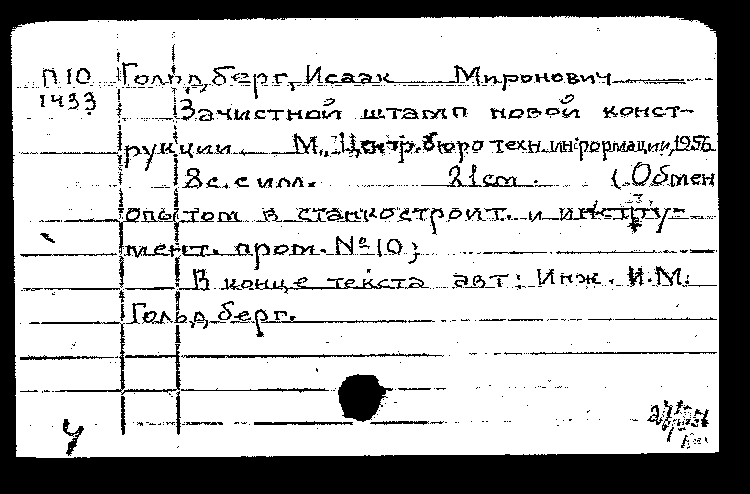 П10 Гольдберг, Исаак Миронович
1433 Зачистной штамп новой конст-
рукции. М., Центр. бюро техн. информации, 1956
8 с. с илл. 21 см. (Обмен
опытом в станкостроит. и инстру-
мент. пром. № 10)
В конце текста авт: Инж. И.М.
Гольдберг.